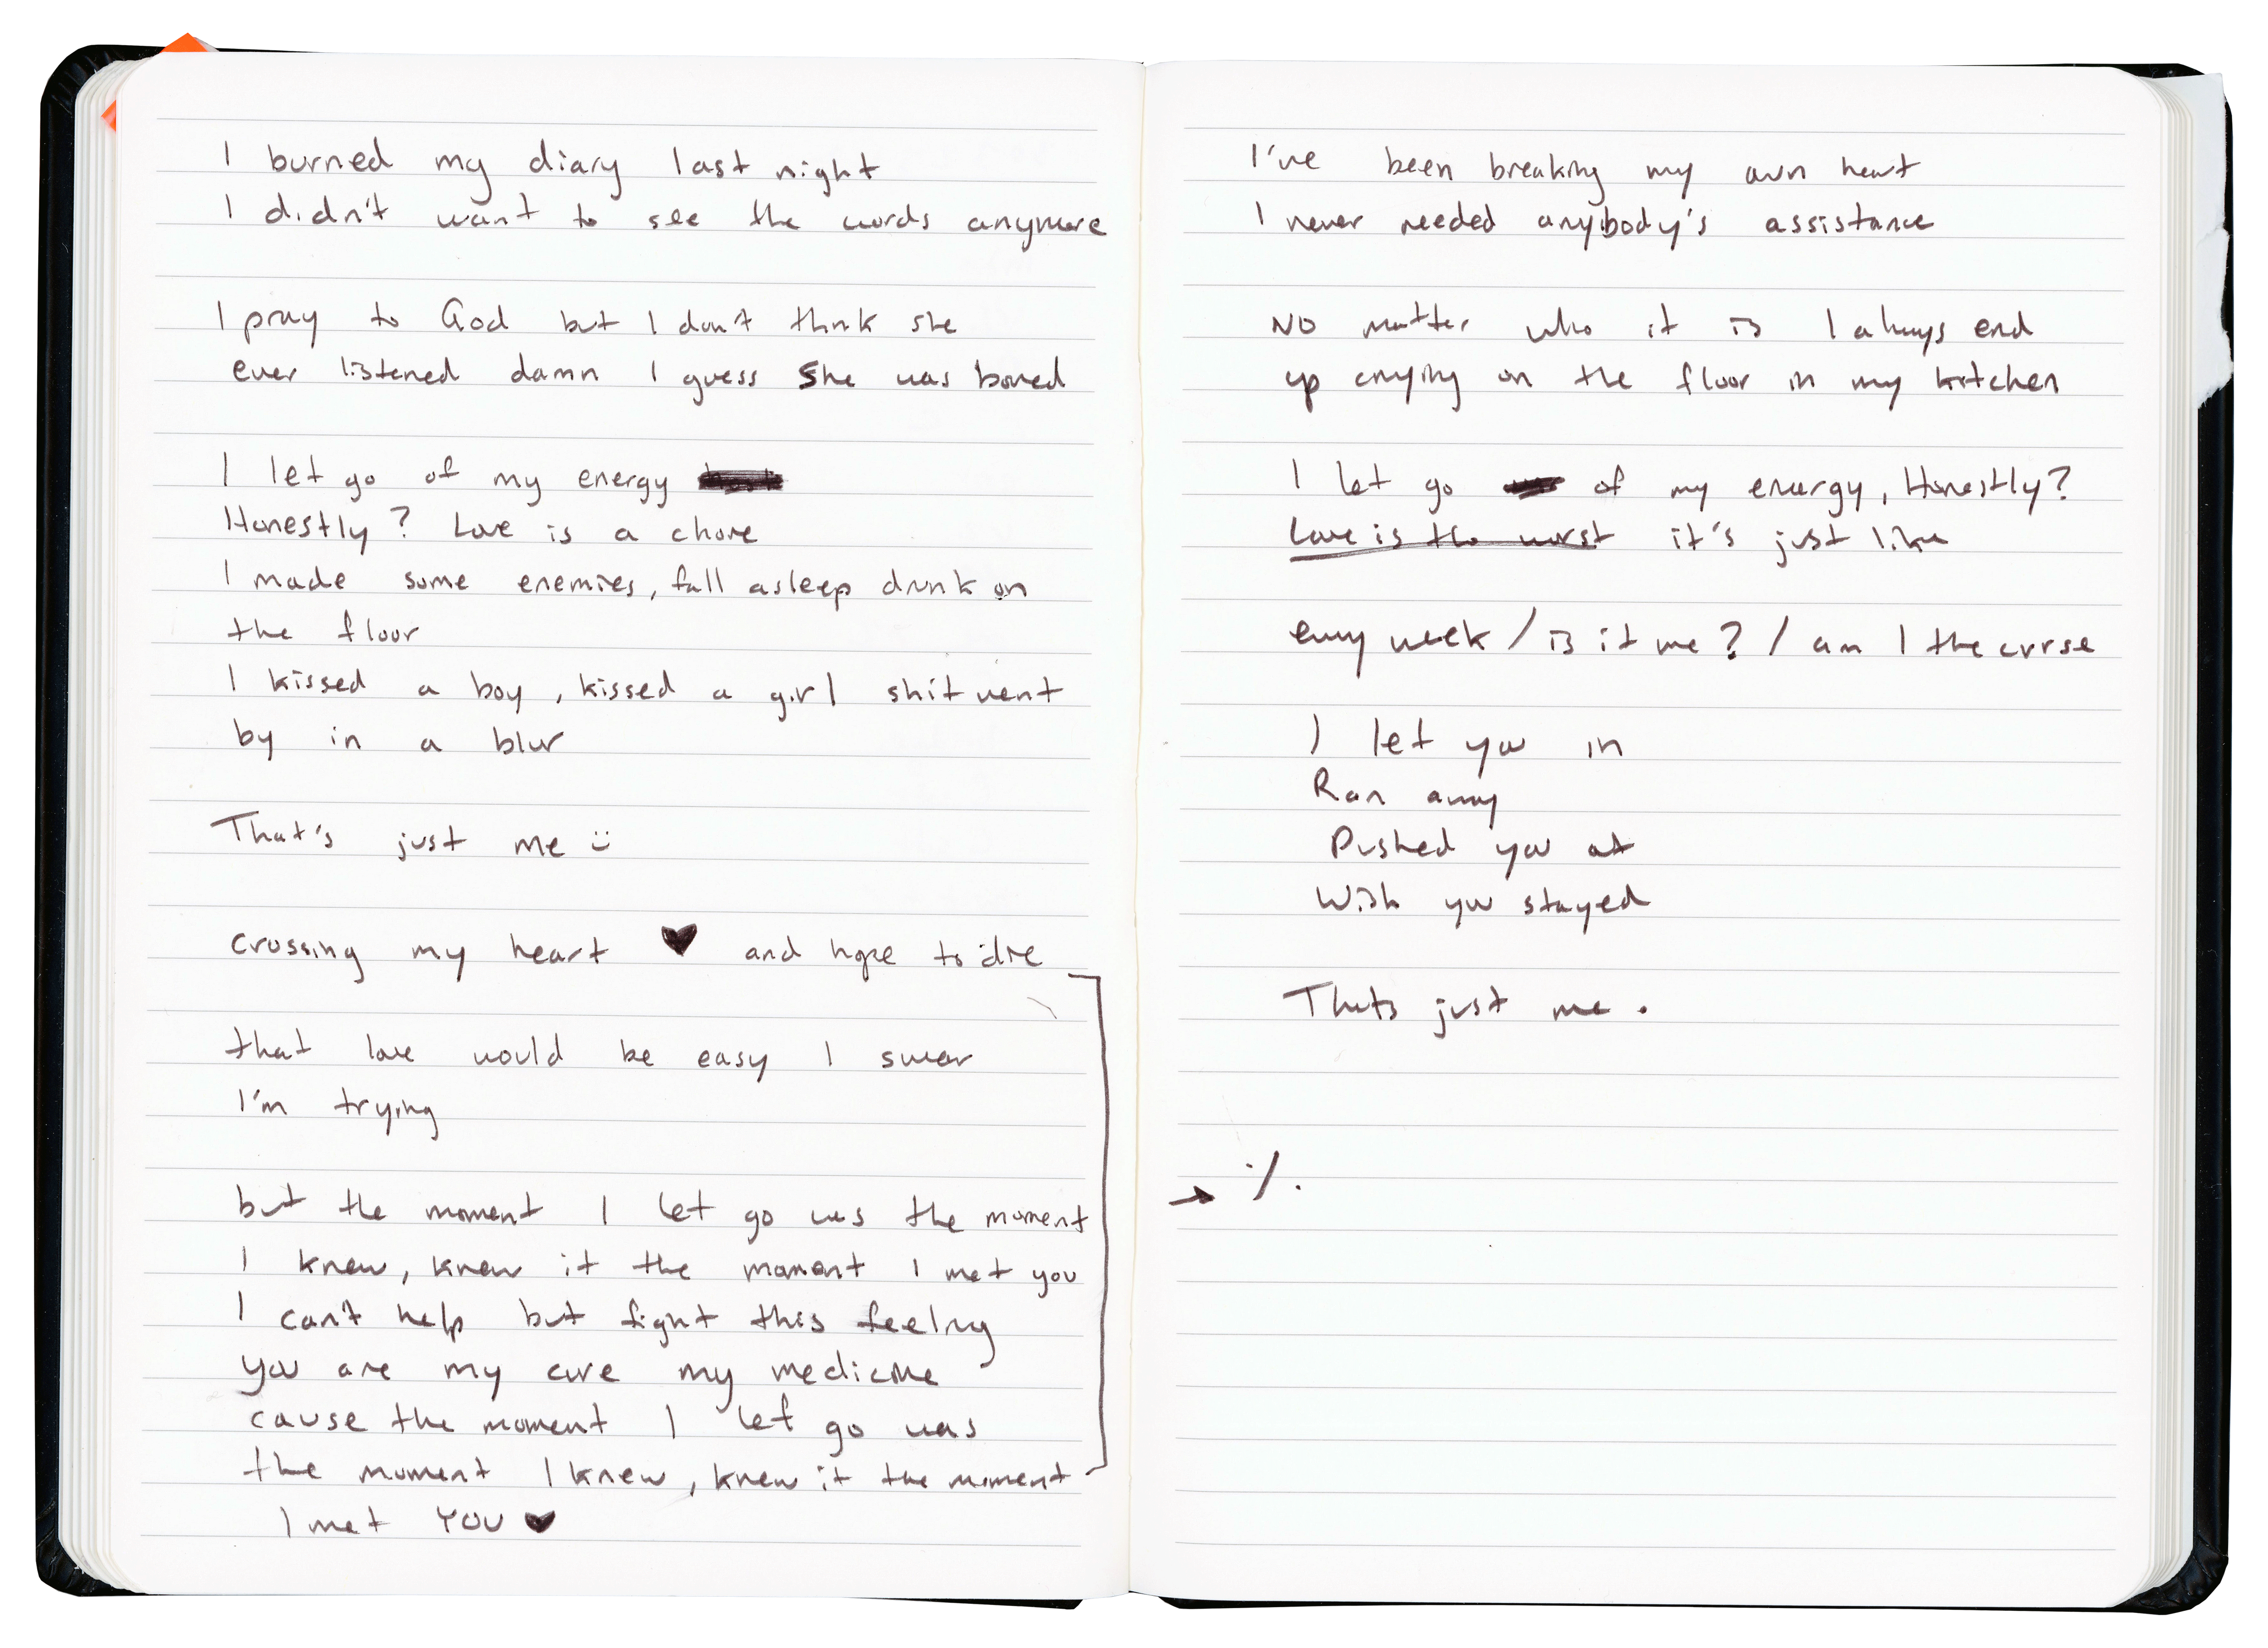 I burned my diary last night
I didn't want to see the words anymore
I pray to God but I don't think she
ever listened damn I guess She was bored
I let go of my energy
Honestly? Love is a chore
I made some enemies, fall asleep drunk on
the floor
I kissed a boy, kissed a girl shit went
by in a blur
That's just me :)
crossing my heart ♥ and hope to die
that love would be easy I swear
I'm trying
but the moment I let go was the moment
I knew, knew it the moment I met you
I can't help but fight this feeling
you are my cure my medicine
cause the moment I let go was
the moment I knew, knew it the moment
I met YOU ♥
I've been breaking my own heart
I never needed anybody's assistance
NO matter who it is I always end
up crying on the floor in my kitchen
I let go of my energy, Honestly?
Love is the worst it's just like
every week / is it me? / am I the curse
I let you in
Ran away
Pushed you out
Wish you stayed
Thats just me.
→ ·/.